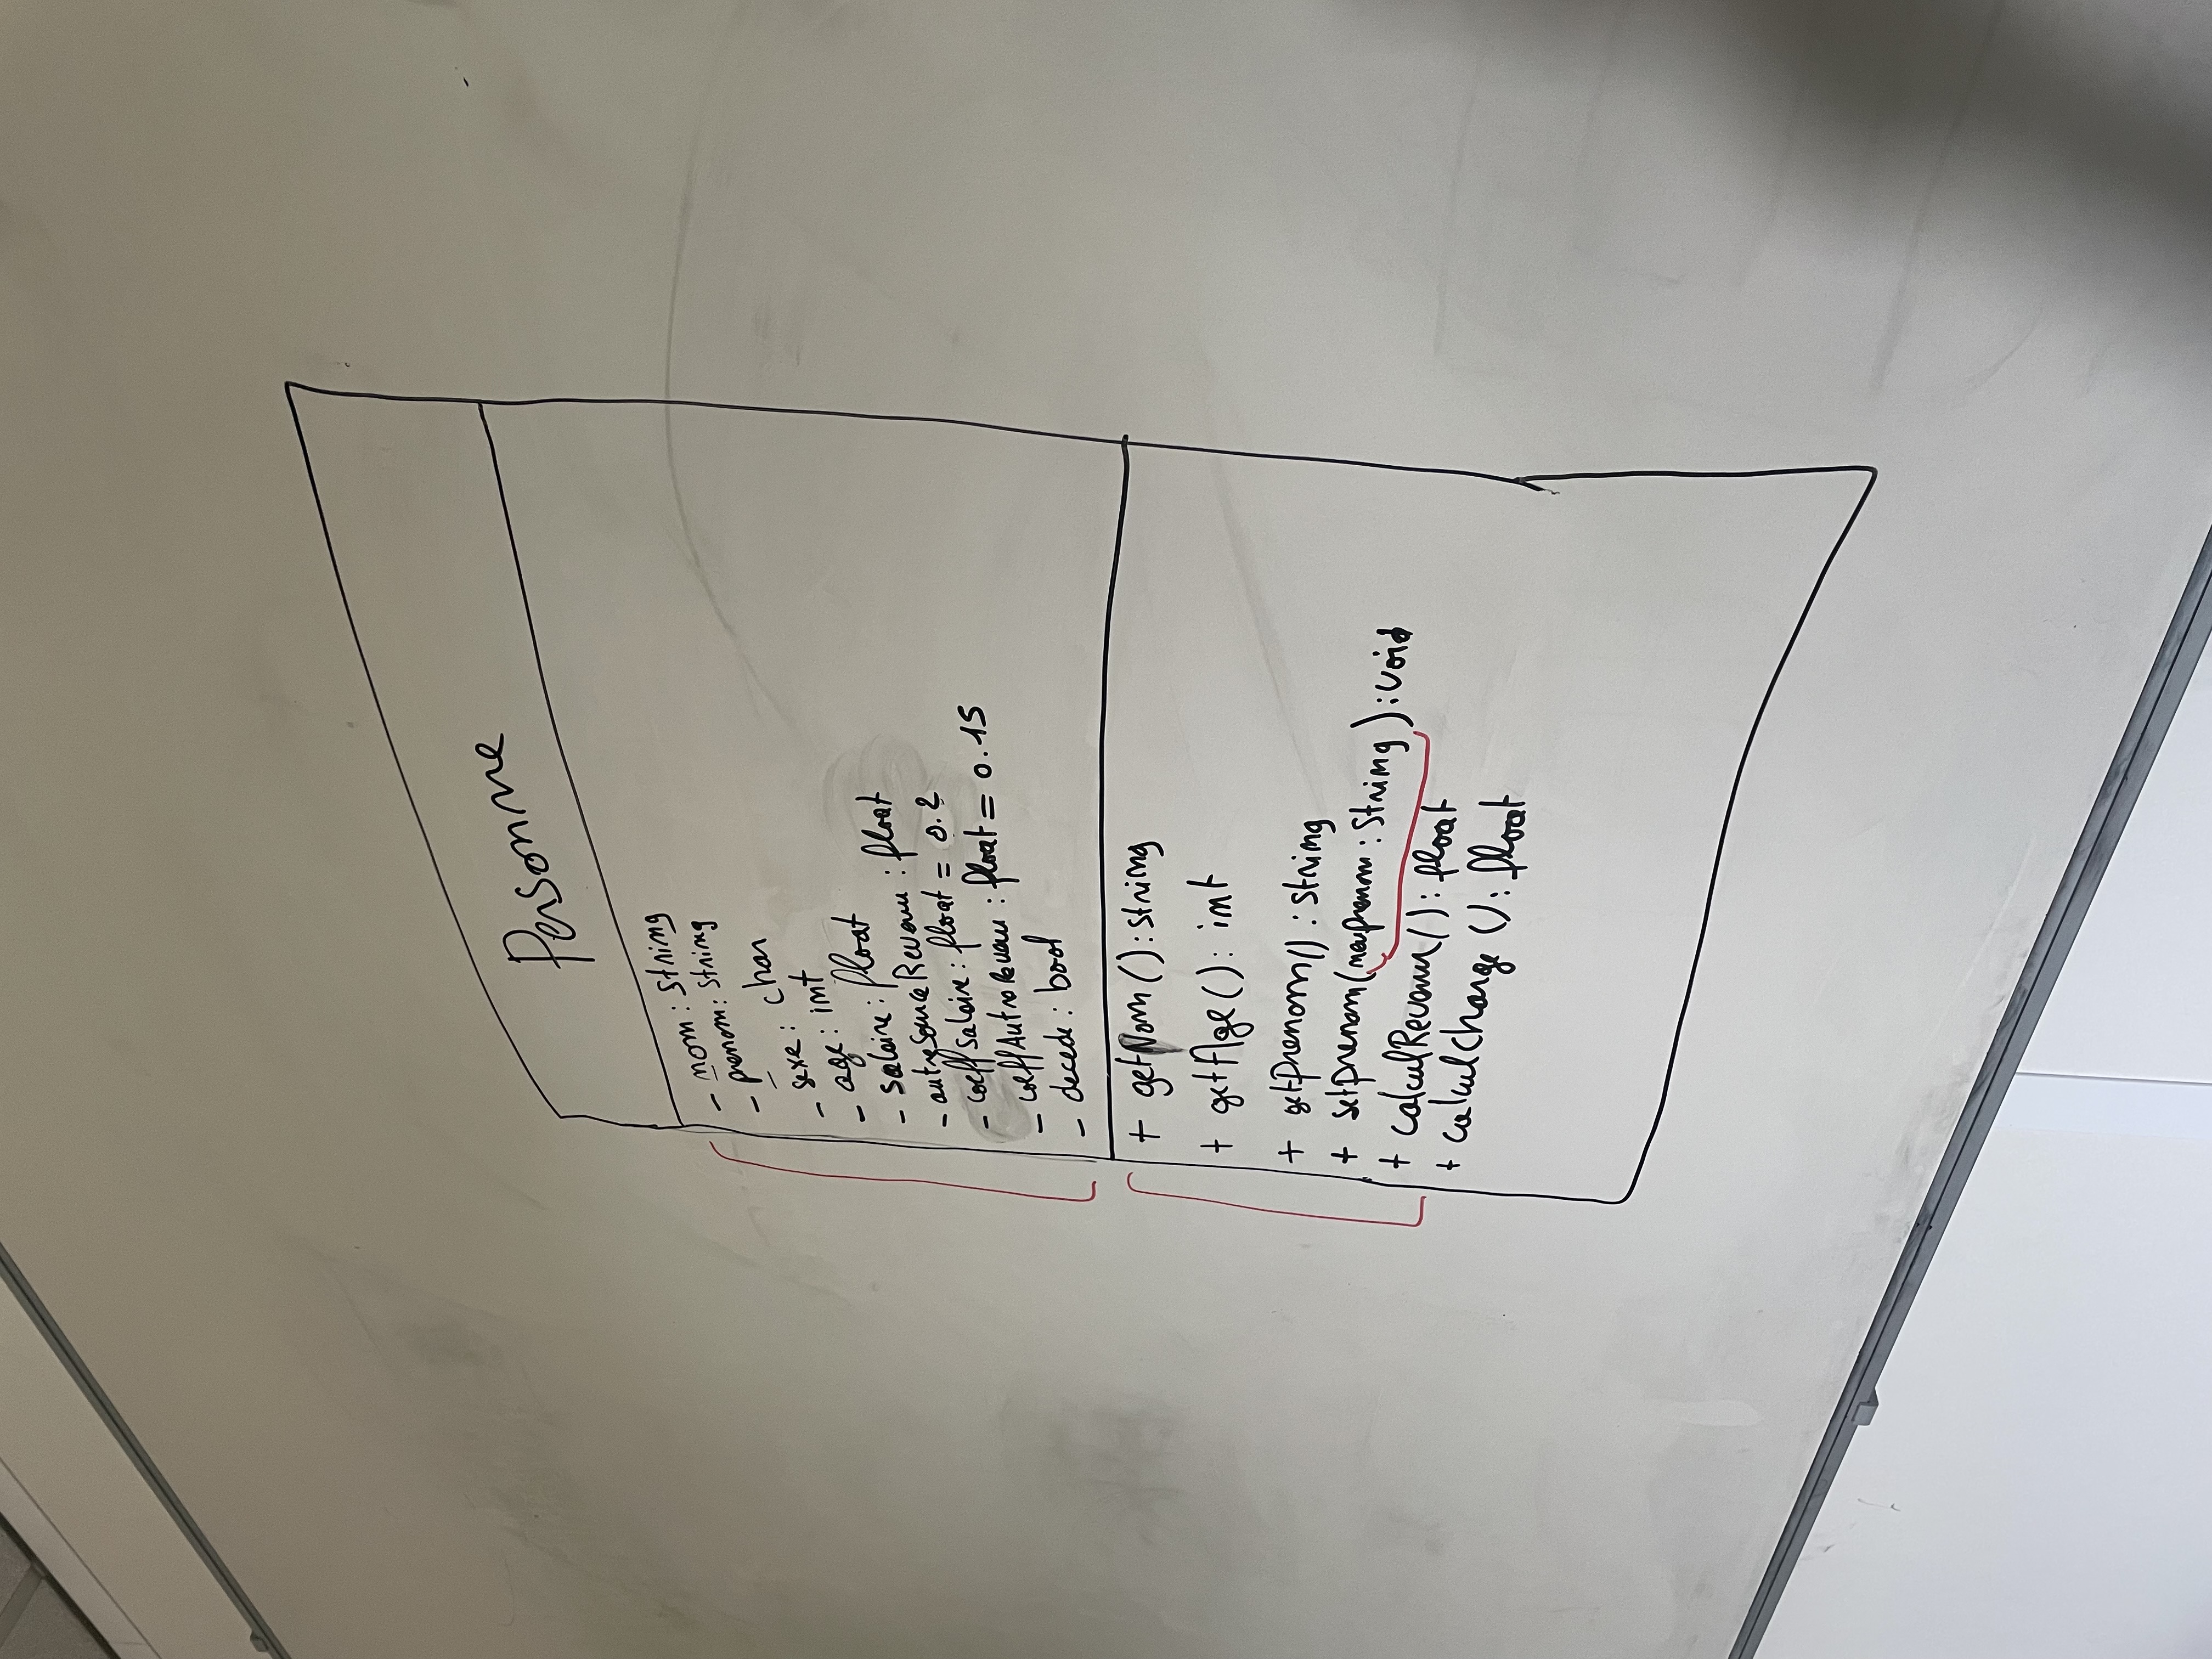 Personne
- nom : String
- prenom : String
- sexe : char
- age : int
- salaire : float
- autreSourceRevenu : float
- coeffSalaire : float = 0.2
- coeffAutreRevenu : float = 0.15
- decede : bool
+ getNom () : string
+ getAge () : int
+ getPrenom() : string
+ setPrenom(nouvPrenom : String) : void
+ calculRevenu() : float
+ calculCharge () : float